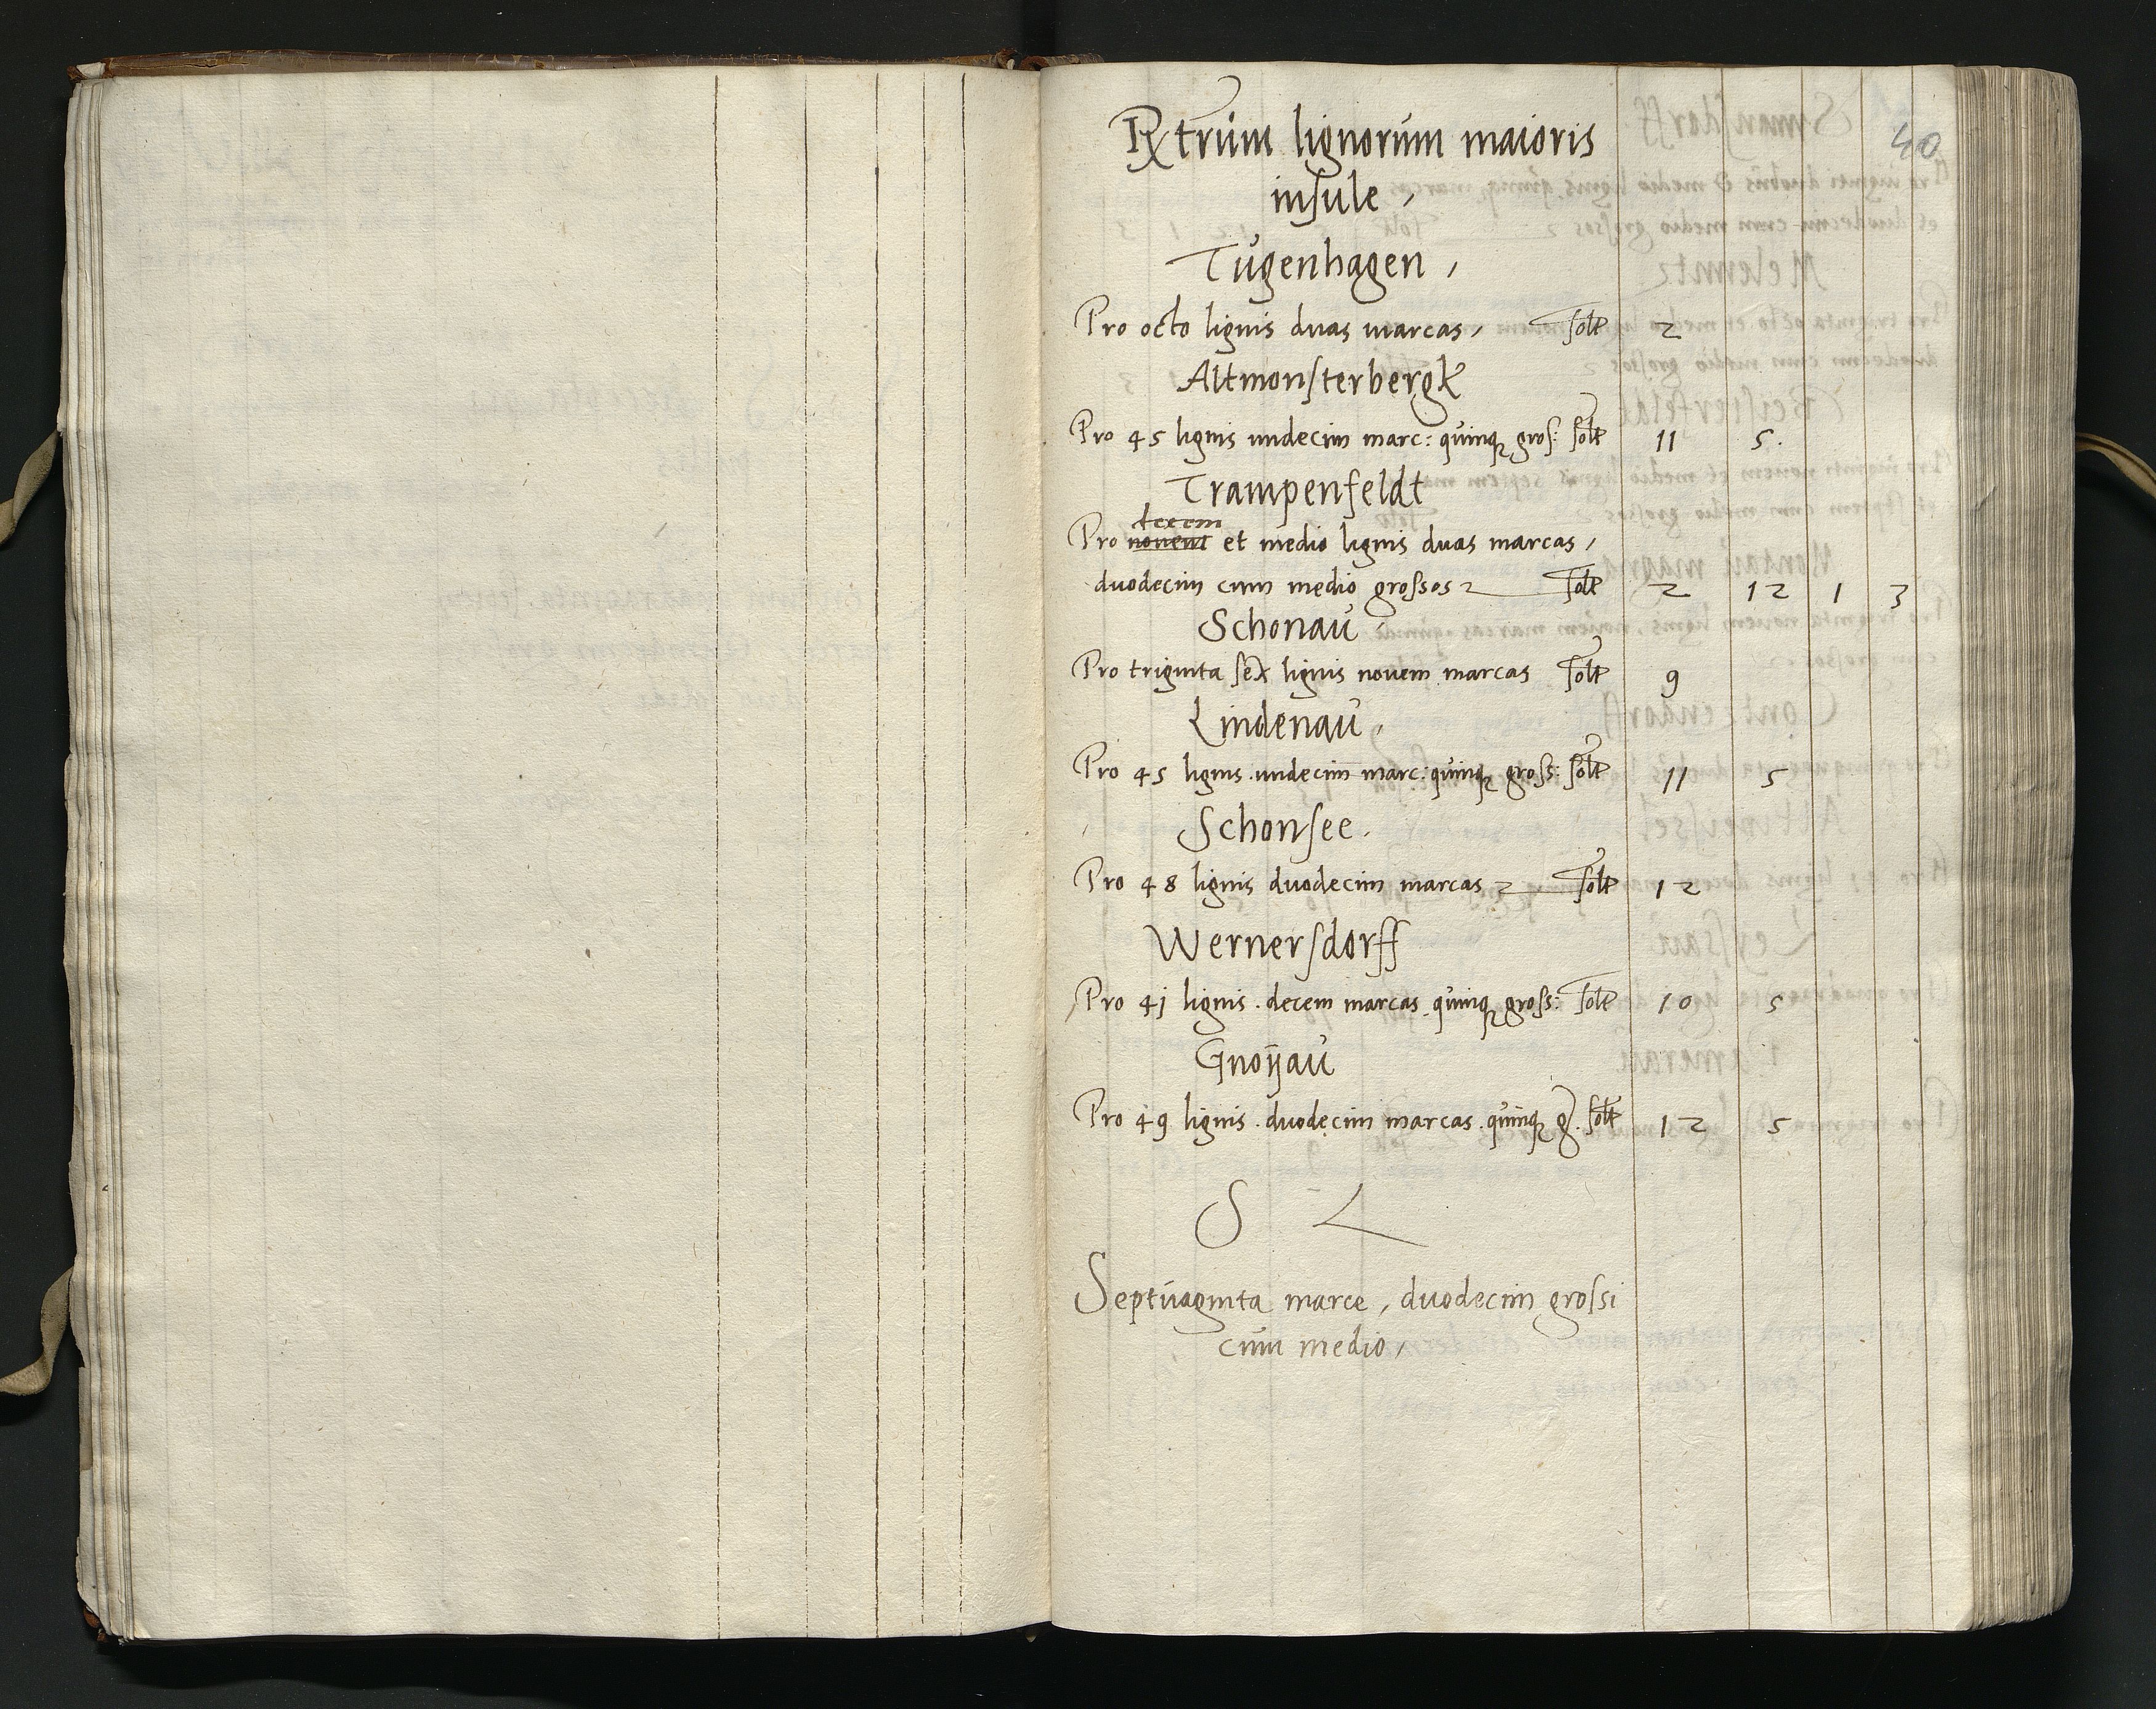 40
Rxtrum lignorum maioris
insule,
Tugenhagen,
Pro octo lignis duas marcas, solt 2
Altmonsterbergk
Pro 45 lignis undecim marc: quinq gros: solt 11 5.
Trampenfeldt
decem
Pro novem et medio lignis duas marcas,
duodecim cum medio grossos solt 2 12 1 3
Schonau
Pro triginta sex lignis novem marcas solt 9
Lindenau,
Pro 45 lignis. undecim marc: quinq gross: solt 11 5
Schonsee.
Pro 48 lignis duodecim marcas solt 12
Wernersdorff
Pro 41 lignis. decem marcas quinq gross: solt 10 5
Gnoÿau
Pro 49 lignis. duodecim marcas. quinq g. solt 12 5
S L
Septuaginta marce, duodecim grossi
cum medio,